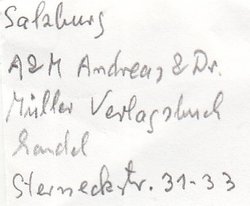 Salzburg
A&M Andreas & Dr.
Müller Verlagsbuch
handel
Sterneckstr. 31-33